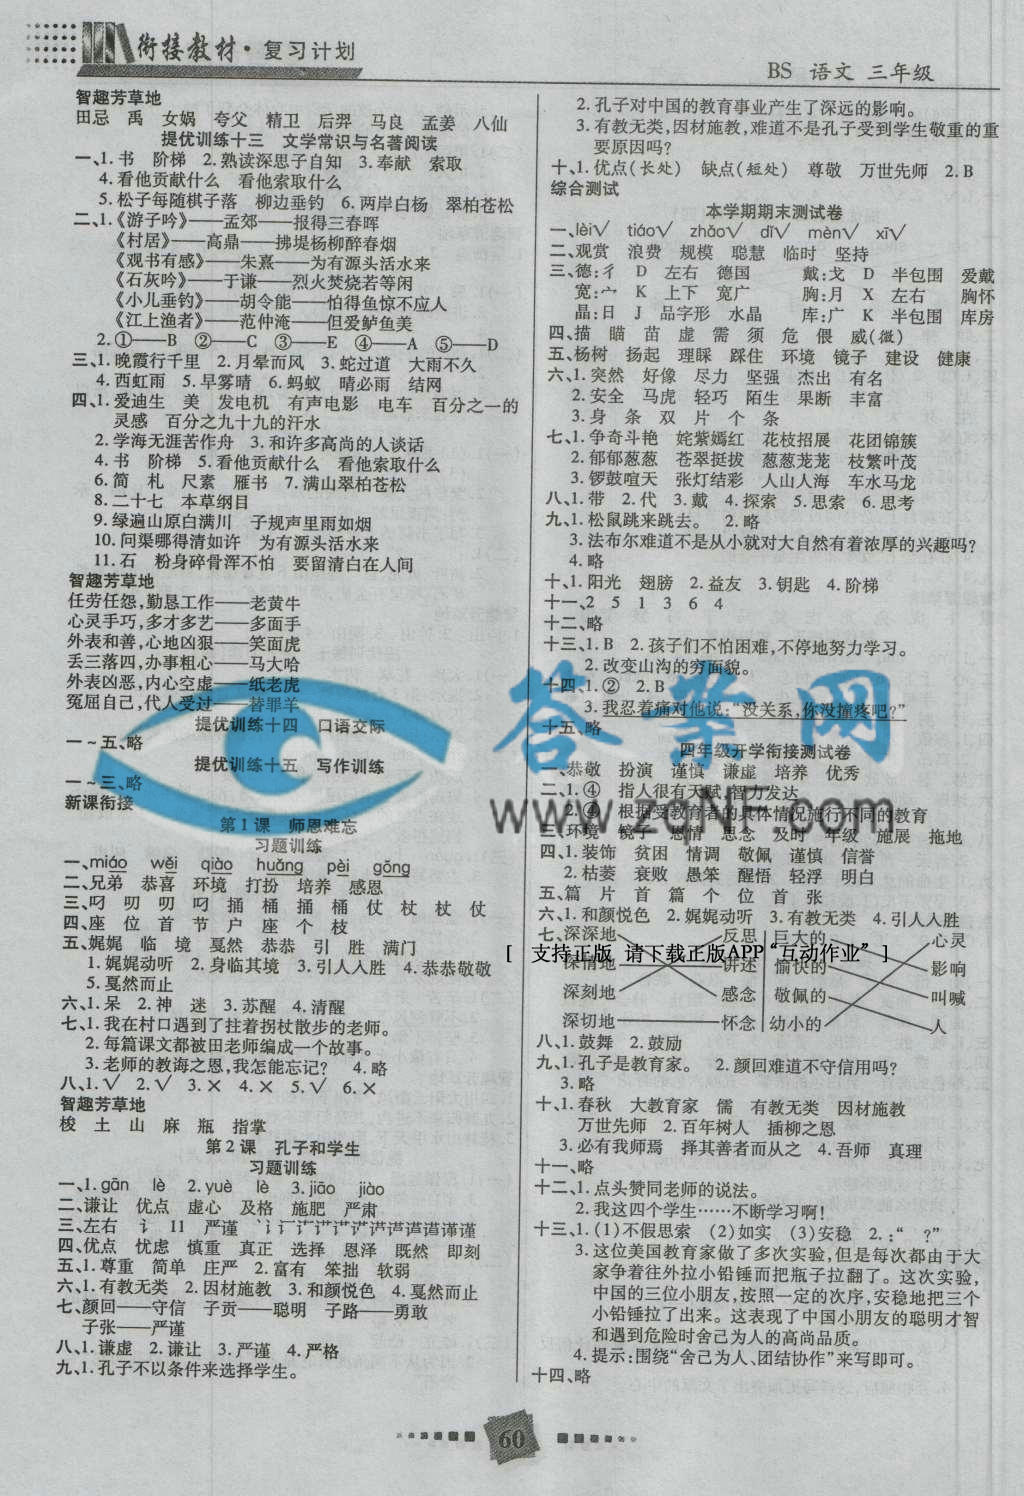 衔接教材·复习计划
BS 语文 三年级
智趣芳草地
田忌 禹 女娲 夸父 精卫 后羿 马良 孟姜 八仙
提优训练十三 文学常识与名著阅读
一、1.书 阶梯 2.熟读深思子自知 3.奉献 索取
4.看他贡献什么 看他索取什么
5.松子每随棋子落 柳边垂钓 6.两岸白杨 翠柏苍松
二、1.《游子吟》——孟郊——报得三春晖
《村居》——高鼎——拂堤杨柳醉春烟
《观书有感》——朱熹——为有源头活水来
《石灰吟》——于谦——烈火焚烧若等闲
《小儿垂钓》——胡令能——怕得鱼惊不应人
《江上渔者》——范仲淹——但爱鲈鱼美
2.①——B ②——C ③——E ④——A ⑤——D
三、1.晚霞行千里 2.月晕而风 3.蛇过道 大雨不久
4.西虹雨 5.早雾晴 6.蚂蚁 晴必雨 结网
四、1.爱迪生 美 发电机 有声电影 电车 百分之一的
灵感 百分之九十九的汗水
2.学海无涯苦作舟 3.和许多高尚的人谈话
4.书 阶梯 5.看他贡献什么 看他索取什么
6.简 札 尺素 雁书 7.满山翠柏苍松
8.二十七 本草纲目
9.绿遍山原白满川 子规声里雨如烟
10.问渠哪得清如许 为有源头活水来
11.石 粉身碎骨浑不怕 要留清白在人间
智趣芳草地
任劳任怨,勤恳工作——老黄牛
心灵手巧,多才多艺——多面手
外表和善,心地凶狠——笑面虎
丢三落四,办事粗心——马大哈
外表凶恶,内心空虚——纸老虎
冤屈自己,代人受过——替罪羊
提优训练十四 口语交际
一~五、略
提优训练十五 写作训练
一~三、略
新课衔接
第1课 师恩难忘
习题训练
一、miáo wěi qiào huǎng pèi gōng
二、兄弟 恭喜 环境 打扮 培养 感恩
三、叼 叨 叨 叼 捅 桶 捅 桶 仗 杖 杖 仗
四、座 位 首 节 户 座 个 枝
五、娓娓 临 境 戛然 恭恭 引 胜 满门
1.娓娓动听 2.身临其境 3.引人入胜 4.恭恭敬敬
5.戛然而止
六、1.呆 2.神 迷 3.苏醒 4.清醒
七、1.我在村口遇到了拄着拐杖散步的老师。
2.每篇课文都被田老师编成一个故事。
3.老师的教诲之恩,我怎能忘记? 4.略
八、1.√ 2.√ 3.× 4.× 5.√ 6.×
智趣芳草地
梭 土 山 麻 瓶 指掌
第2课 孔子和学生
习题训练
一、1.gān lè 2.yuè lè 3.jiāo jiào
二、谦让 优点 虚心 及格 施肥 严肃
四、优点 忧虑 慎重 真正 选择 恩泽 既然 即刻
五、1.尊重 简单 庄严 2.富有 笨拙 软弱
六、1.有教无类 2.因材施教 3.和颜悦色 4.戛然而止
七、颜回——守信 子贡——聪明 子路——勇敢
子张——严谨
八、1.谦虚 2.谦让 3.严谨 4.严格
九、1.孔子不以条件来选择学生。
2.孔子对中国的教育事业产生了深远的影响。
3.有教无类,因材施教,难道不是孔子受到学生敬重的重
要原因吗?
十、1.优点(长处) 缺点(短处) 尊敬 万世师表 2.B
综合测试
本学期期末测试卷
一、lèi√ tiáo√ zhǎo√ dǐ√ mèn√ xī√
二、观赏 浪费 规模 聪慧 临时 坚持
三、德:彳 D 左右 德国 戴:戈 D 半包围 爱戴
宽:宀 K 上下 宽广 胸:月 X 左右 胸怀
晶:日 J 品字形 水晶 库:广 K 半包围 库房
四、描 瞄 苗 虚 需 须 危 偎 威(微)
五、杨树 扬起 理睬 踩住 环境 镜子 建设 健康
六、1.突然 好像 尽力 坚强 杰出 有名
2.安全 马虎 轻巧 陌生 果断 丰富
3.身 条 双 片 个 条
七、1.争奇斗艳 姹紫嫣红 花枝招展 花团锦簇
2.郁郁葱葱 苍翠挺拔 葱葱茏茏 枝繁叶茂
3.锣鼓喧天 张灯结彩 人山人海 车水马龙
八、1.带 2.代 3.戴 4.探索 5.思索 6.思考
九、1.松鼠跳来跳去。 2.略
3.法布尔难道不是从小就对大自然有着浓厚的兴趣吗?
4.略
十、1.阳光 翅膀 2.益友 3.钥匙 4.阶梯
十一、2 5 1 3 6 4
十二、略
十三、1.B 2.孩子们不怕困难,不停地努力学习。
2.改变山沟的穷面貌。
十四、1.② 2.B
3.我忍着痛对他说:“没关系,你没撞疼吧?”
十五、略
四年级开学衔接测试卷
一、恭敬 扮演 谨慎 谦虚 培养 优秀
二、1.④ 指人很有天赋,智力发达
2.④ 根据受教育者的具体情况施行不同的教育
三、环境 镜子 恩情 思念 及时 年级 施展 拖地
四、1.装饰 贫困 情调 敬佩 谨慎 信誉
2.枯萎 衰败 愚笨 醒悟 轻浮 明白
五、篇 片 首 篇 个 位 首 张
六、1.和颜悦色 2.娓娓动听 3.有教无类 4.引人入胜
七、深深地 反思 巨大的 心灵
深情地 讲述 愉快的 影响
深刻地 感念 敬佩的 叫喊
深切地 怀念 幼小的 人
八、1.鼓舞 2.鼓励
九、1.孔子是教育家。 2.颜回难道不守信用吗?
3.略
十、1.春秋 大教育家 儒 有教无类 因材施教
万世师表 2.百年树人 插柳之恩
3.必有我师焉 择其善者而从之 4.吾师 真理
十一、略
十二、1.点头赞同老师的说法。
2.我这四个学生……不断学习啊!
十三、1.(1)不假思索 (2)如实 (3)安稳 2.:“ ?”
3.这位美国教育家做了多次实验,但是每次都由于大
家争着往外拉小铅锤而把瓶子拉翻了。这次实验,
中国的三位小朋友,按照一定的次序,安稳地把三个
小铅锤拉了出来。这表现了中国小朋友的聪明才智
和遇到危险时舍己为人的高尚品质。
4.提示:围绕“舍己为人、团结协作”来写即可。
十四、略
答案网
www.zqNF.com
[ 支持正版 请下载正版APP“互动作业” ]
60